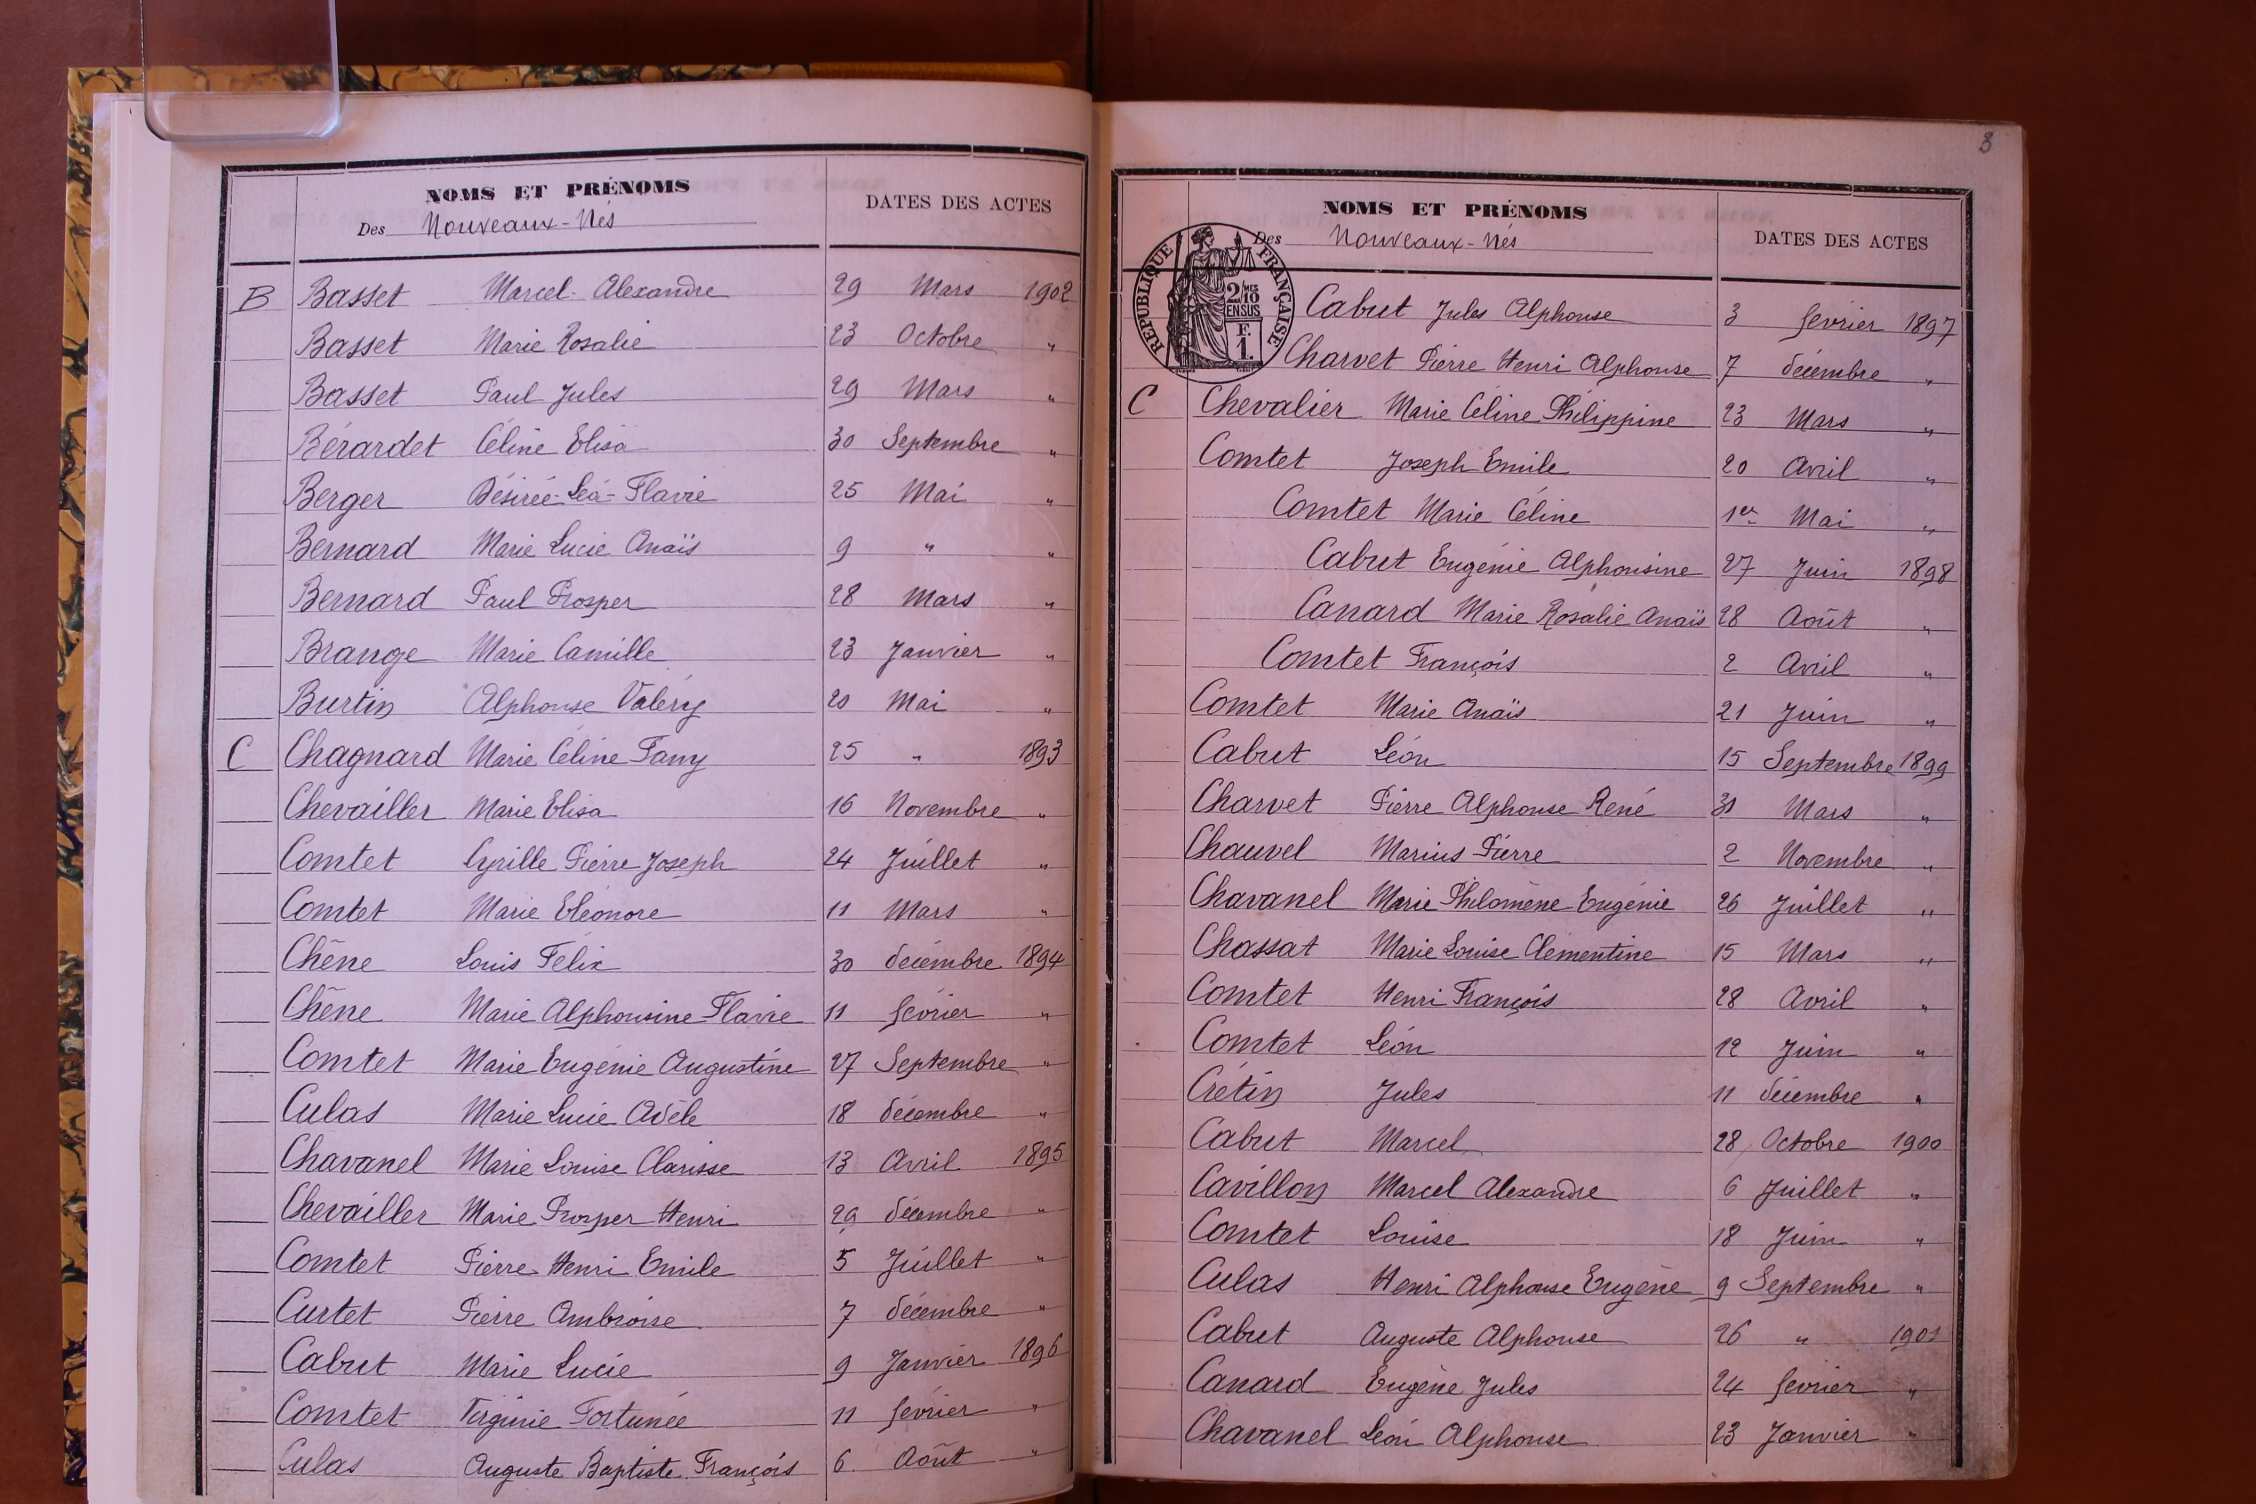 NOMS ET PRÉNOMS
Des Nouveaux-Nés
DATES DES ACTES
B Basset Marcel-Alexandre 29 Mars 1902
Basset Marie Rosalie 23 Octobre "
Basset Paul Jules 29 Mars "
Bérardet Céline Elisa 30 Septembre "
Berger Désirée-Léa-Flavie 25 Mai "
Bernard Marie Lucie Anaïs 9 " "
Bernard Paul Prosper 28 Mars "
Brange Marie Camille 23 Janvier "
Burtin Alphonse Valéry 20 Mai "
C Chagnard Marie Céline Fany 25 " 1893
Chevailler Marie Elisa 16 Novembre "
Comtet Cyrille Pierre Joseph 24 Juillet "
Comtet Marie Eléonore 11 Mars "
Chêne Louis Félix 30 décembre 1894
Chêne Marie Alphonsine Flavie 11 février "
Comtet Marie Eugénie Augustine 27 Septembre "
Culas Marie Lucie Adèle 18 décembre "
Chavanel Marie Louise Clarisse 13 Avril 1895
Chevailler Marie Prosper Henri 29 décembre "
Comtet Pierre Henri Emile 5 Juillet "
Curtet Pierre Ambroise 7 décembre "
Cabut Marie Lucie 9 Janvier 1896
Comtet Virginie Fortunée 11 février "
Culas Auguste Baptiste François 6 Août "
3
NOMS ET PRÉNOMS
Des Nouveaux-Nés
DATES DES ACTES
RÉPUBLIQUE FRANÇAISE
2/10 MES
EN SUS
F.
1.
Cabut Jules Alphonse 3 février 1897
Charvet Pierre Henri Alphonse 7 décembre "
C Chevalier Marie Céline Philippine 23 Mars "
Comtet Joseph Emile 20 Avril "
Comtet Marie Céline 1er Mai "
Cabut Eugénie Alphonsine 27 Juin 1898
Canard Marie Rosalie Anaïs 28 Août "
Comtet François 2 Avril "
Comtet Marie Anaïs 21 Juin "
Cabut Léon 15 Septembre 1899
Charvet Pierre Alphonse René 31 Mars "
Chauvel Marius Pierre 2 Novembre "
Chavanel Marie Philomène Eugénie 26 Juillet "
Chassat Marie Louise Clémentine 15 Mars "
Comtet Henri François 28 Avril "
Comtet Léon 12 Juin "
Crétin Jules 11 décembre "
Cabut Marcel 28 Octobre 1900
Cavillon Marcel Alexandre 6 Juillet "
Comtet Louise 18 Juin "
Culas Henri Alphonse Eugène 9 Septembre "
Cabut Auguste Alphonse 26 " 1901
Canard Eugène Jules 24 février "
Chavanel Léon Alphonse 23 Janvier "